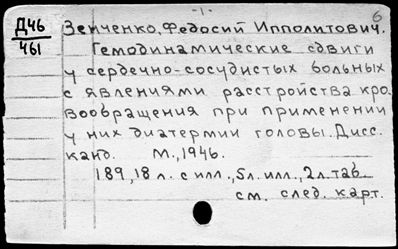 -1-
6
Д46
461
Зенченко, Федосий Ипполитович.
Гемодинамические сдвиги
у сердечно-сосудистых больных
с явлениями расстройства кро-
вообращения при применении
у них диатермии головы. Дисс.
канд. М., 1946.
189, 18 л. с илл., 5 л. илл., 2 л. таб.
см. след. карт.